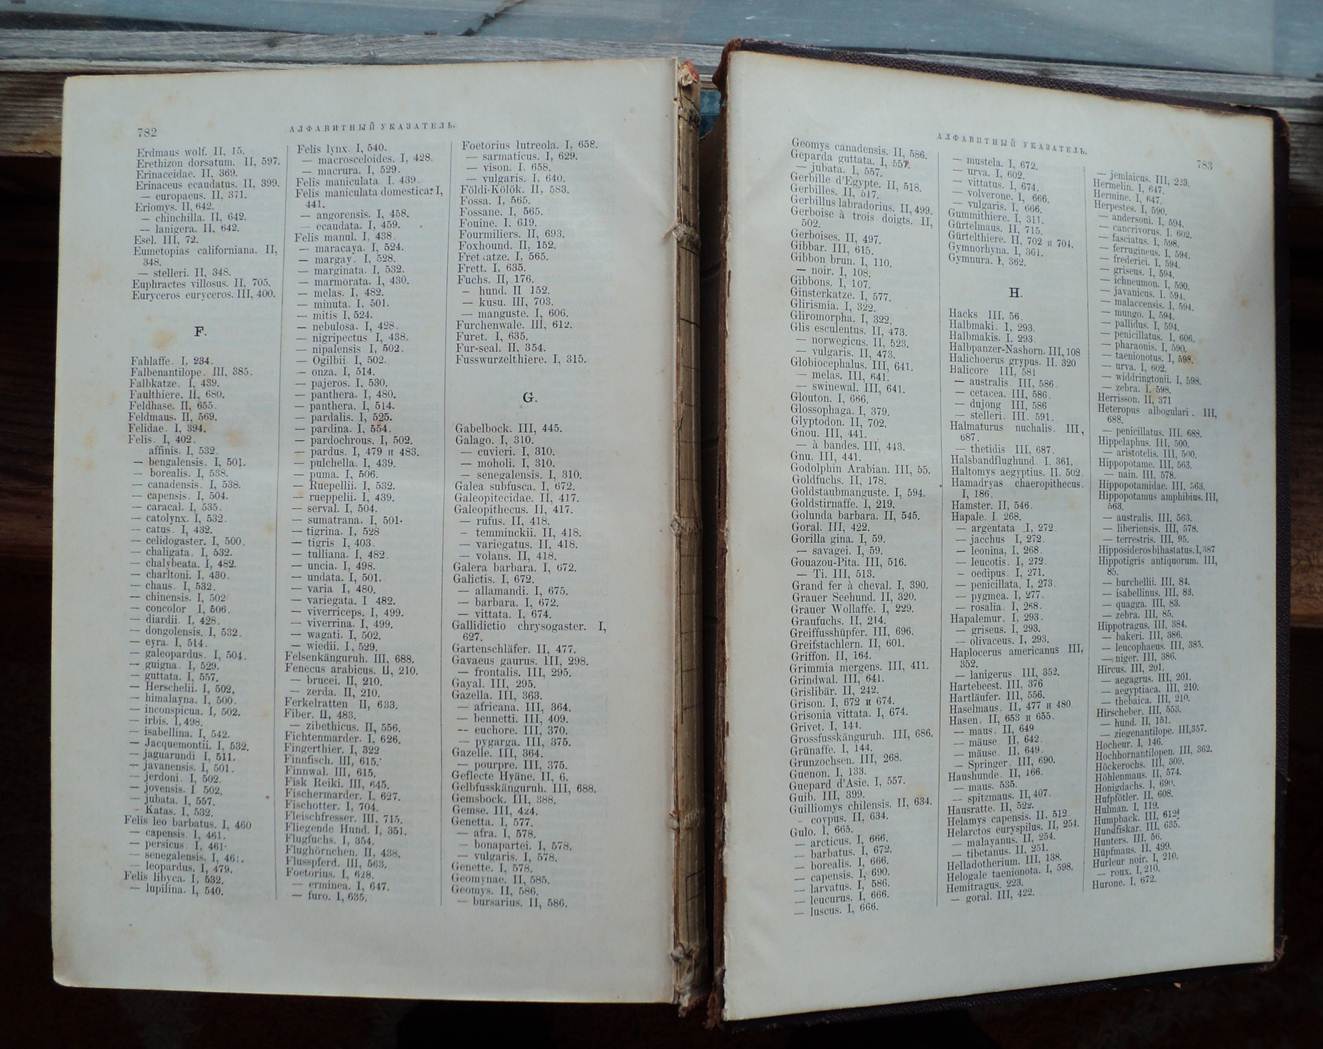 782
АЛФАВИТНЫЙ УКАЗАТЕЛЬ.
Erdmaus wolf. II, 15.
Erethizon dorsatum. II, 597.
Erinaceidae. II, 369.
Erinaceus ecaudatus. II, 399.
— europaeus. II, 371.
Eriomys. II, 642.
— chinchilla. II, 642.
— lanigera. II, 642.
Esel. III, 72.
Eumetopias californiana. II,
348.
— stelleri. II, 348.
Euphractes villosus. II, 705.
Euryceros euryceros. III, 400.
F.
Fahlaffe. I, 234.
Falbenantilope. III, 385.
Falbkatze. I, 439.
Faulthiere. II, 680.
Feldhase. II, 655.
Feldmaus. II, 569.
Felidae. I, 394.
Felis. I, 402.
affinis. I, 532.
— bengalensis. I, 501.
— borealis. I, 538.
— canadensis. I, 538.
— capensis. I, 504.
— caracal. I, 535.
— catolynx. I, 532.
— catus. I, 432.
— celidogaster. I, 500.
— chaligata. I, 532.
— chalybeata. I, 482.
— charltoni. I, 430.
— chaus. I, 532.
— chinensis. I, 502
— concolor I, 506.
— diardii. I, 428.
— dongolensis. I, 532.
— eyra. I, 514.
— galeopardus. I, 504.
— guigna. I, 529.
— guttata. I, 557.
— Herschelii. I, 502,
— himalayna. I, 500.
— inconspicua. I, 502.
— irbis. I, 498.
— isabellina. I, 542.
— Jacquemontii. I, 532.
— jaguarundi I, 511.
— javanensis. I, 501.
— jerdoni. I, 502.
— jovensis. I 502.
— jubata. I, 557.
— Katas. I, 532.
Felis leo barbatus. I, 460
— capensis. I, 461.
— persicus. I, 461.
— senegalensis. I,
— leopardus. I, 479.
Felis libyca. I, 532.
— lupilina. I, 540.
Felis lynx. I, 540.
— macrosceloides. I, 428.
— macrura. I, 529.
Felis maniculata. I, 439.
Felis maniculata domestica. I,
441.
— angorensis. I, 458.
— ecaudata. I, 459.
Felis manul. I, 438.
— maracaya. I, 524.
— margay. I, 528.
— marginata. I, 532.
— marmorata. I, 430.
— melas. I, 482.
— minuta. I, 501.
— mitis I, 524.
— nebulosa. I, 428.
— nigripectus I, 438.
— nipalensis I, 502.
— Ogilbii I, 502.
— onza. I, 514.
— pajeros. I, 530.
— panthera. I, 480.
— panthera. I, 514.
— pardalis. I, 525.
— pardina. I, 554.
— pardochrous. I, 502.
— pardus. I, 479 и 483.
— pulchella. I, 439.
— puma. I, 506.
— Rueppelii. I, 532.
— rueppelii. I, 439.
— serval. I, 504.
— sumatrana. I, 501.
— tigrina. I, 528
— tigris I, 403
— tulliana. I, 482.
— uncia. I, 498.
— undata. I, 501.
— varia I, 480.
— variegata. I 482.
— viverriceps. I, 499.
— viverrina. I, 499.
— wagati. I, 502.
— wiedii. I, 529.
Felsenkänguruh. III, 688.
Fenecus arabicus. II, 210.
— brucei. II, 210.
— zerda. II, 210.
Ferkelratten II, 633.
Fiber. II, 483.
— zibethicus. II, 556.
Fichtenmarder. I, 626.
Fingerthier. I, 322
Finnfisch. III, 615.
Finnwal. III, 615.
Fisk Reiki. III, 645.
Fischermarder. I, 627.
Fischotter. I, 704.
Fleischfresser. III, 715.
Fliegende Hund. I, 351.
Flugfuchs. I, 354.
Flughörnchen. II, 438.
Flusspferd. III, 563.
Foetorius. I, 628.
— erminea. I, 647.
— furo. I, 635.
Foetorius lutreola. I, 658.
— sarmaticus. I, 629.
— vison. I. 658.
— vulgaris. I, 640.
Földi-Kölök. II, 583.
Fossa. I, 565.
Fossane. I, 565.
Fouine. I. 619.
Fourmiliers. II, 693.
Foxhound. II, 152.
Fret atze. I, 565.
Frett. I. 635.
Fuchs. II, 176.
— hund. II 152.
— kusu. III, 703.
— manguste. I, 606.
Furchenwale. III, 612.
Furet. I, 635.
Fur-seal. II. 354.
Fusswurzelthiere. I, 315.
G.
Gabelbock. III, 445.
Galago. I, 310.
— cuvieri. I, 310.
— moholi. I, 310.
— senegalensis. I, 310.
Galea subfusca. I, 672.
Galeopitecidae. II, 417.
Galeopithecus. II, 417.
— rufus. II, 418.
— temminckii. II, 418.
— variegatus. II, 418.
— volans. II, 418.
Galera barbara. I, 672.
Galictis. I, 672.
— allamandi. I, 675.
— barbara. I, 672.
— vittata. I, 674.
Gallidictio chrysogaster. I,
627.
Gartenschläfer. II, 477.
Gavaeus gaurus. III, 298.
— frontalis. III, 295.
Gayal. III, 295.
Gazella. III, 363.
— africana. III, 364.
— bennetti. III, 409.
— euchore. III, 370.
— pygarga. III, 375.
Gazelle. III, 364.
— pourpre. III, 375.
Geflecte Hyäne. II, 6.
Gelbfusskänguruh. III, 688.
Gemsbock. III, 388.
Gemse. III, 424.
Genetta. I, 577.
— afra. I, 578.
— bonapartei. I, 578,
— vulgaris. I, 578.
Genette. I, 578.
Geomyinae. II, 585.
Geomys. II, 586.
— bursarius. II, 586.
АЛФАВИТНЫЙ УКАЗАТЕЛЬ.
783
Geomys canadensis. II, 586.
Geparda guttata. I, 557.
— jubata. I, 557.
Gerbille d'Egypte. II, 518.
Gerbilles. II, 517.
Gerbillus labradorius. II, 499.
Gerboise à trois doigts. II,
502.
Gerboises. II, 497.
Gibbar. III, 615.
Gibbon brun. I, 110.
— noir. I, 108.
Gibbons. I, 107.
Ginsterkatze. I, 577.
Glirismia. I, 322.
Gliromorpha. I, 322,
Glis esculentus. II, 473.
— norwegicus. II, 523.
— vulgaris. II, 473.
Globiocephalus. III, 641.
— melas. III, 641.
— swinewal. III, 641.
Glouton. I, 666.
Glossophaga. I, 379.
Glyptodon. II, 702.
Gnou. III, 441.
— à bandes. III, 443.
Gnu. III, 441.
Godolphin Arabian. III, 55.
Goldfuchs. II, 178.
Goldstaubmanguste. I, 594.
Goldstirnaffe. I, 219.
Golunda barbara. II, 545.
Goral. III, 422.
Gorilla gina. I, 59.
— savagei. I, 59.
Gouazou-Pita. III, 516.
— Ti. III, 513.
Grand fer à cheval. I, 390.
Grauer Seehund. II, 320.
Grauer Wollaffe. I, 229.
Graufuchs. II, 214.
Greiffusshüpfer. III, 696.
Greifstachlern. II, 601.
Griffon. II, 164.
Grimmia mergens. III, 411.
Grindwal. III, 641.
Grislibär. II, 242.
Grison. I, 672 и 674.
Grisonia vittata. I, 674.
Grivet. I, 144.
Grossfusskänguruh. III, 686.
Grünaffe. I, 144.
Grunzochsen. III, 268.
Guenon. I, 133.
Guepard d'Asie. I, 557.
Guib. III, 399.
Guilliomys chilensis. II, 634.
coypus. II, 634.
Gulo. I, 665.
— arcticus. I, 666.
— barbatus. I, 672.
— borealis. I, 666.
— capensis. I, 690.
— larvatus. I, 586.
— leucurus. I, 666.
— luscus. I, 666.
— mustela. I, 672.
— urva. I, 602.
— vittatus. I, 674.
— volverone. I, 666.
— vulgaris. I, 666.
Gummithiere. I, 311.
Gürtelmaus. II, 715.
Gürtelthiere. II, 702 и 704.
Gymnorhyna. I, 361.
Gymnura. I, 362.
H.
Hacks III, 56.
Halbmaki. I, 293.
Halbmakis. I. 293
Halbpanzer-Nashorn. III, 108
Halichoerus grypus. II. 320
Halicore III, 581
— australis III, 586.
— cetacea. III, 586.
— dujong III, 586
— stelleri. III. 591.
Halmaturus nuchalis. III,
687.
— thetidis III, 687.
Halsbandflughund. I. 361.
Haltomys aegyptius. II. 502
Hamadryas chaeropithecus.
I, 186.
Hamster. II, 546.
Hapale. I. 268.
— argentata I, 272.
— jacchus I, 272.
— leonina, I, 268.
— leucotis. I, 272.
— oedipus I, 271.
— penicillata, I, 273.
— pygmea. I, 277.
— rosalia. I, 268.
Hapalemur. I, 293.
— griseus. I, 293.
— olivaceus. I, 293.
Haplocerus americanus III,
352.
— lanigerus. III, 352.
Hartebeest. III, 376
Hartläufer. III, 556.
Haselmaus. II, 477 и 480
Hasen. II, 653 и 655.
— maus. II, 649
— mäuse II, 642.
— mäuse. II, 649.
— Springer. III, 690.
Haushunde. II, 166.
— maus. 535.
— spitzmaus. II, 407.
Hausratte. II, 522.
Helamys capensis. II. 512.
Helarctos euryspilus. II, 254.
— malayanus. II, 254.
— tibetanus. II, 251.
Helladotherium. III, 138.
Helogale taenionota. I, 598.
Hemitragus. 223.
— goral. III, 422.
— jemlaicus. III, 223.
Hermelin. I, 647.
Hermine. I, 647.
Herpestes. I, 590.
— andersoni. I, 594.
— cancrivorus. I, 602.
— fasciatus. I, 598.
— ferrugineus. I, 594.
— frederici. I, 594.
— griseus. I, 594.
— ichneumon. I, 590.
— javanicus. I, 594.
— malaccensis. I, 594.
— mungo. I, 594.
— pallidus. I, 594.
— penicillatus. I, 606.
— pharaonis. I, 590.
— taenionotus. I, 598.
— urva. I, 602.
— widdringtonii. I, 598.
— zebra. I, 598.
Herrisson. II, 371
Heteropus albogulari. III,
688.
— penicillatus. III, 688.
Hippelaphus. III, 500.
— aristotelis. III, 500.
Hippopotame. III, 563.
— nain. III, 578.
Hippopotamidae. III, 563.
Hippopotamus amphibius. III,
563.
— australis. III, 563.
— liberiensis. III, 578.
— terrestris. III, 95.
Hipposideros bihastatus. I, 387
Hippotigris antiquorum. III,
85.
— burchellii. III. 84.
— isabellinus. III, 83.
— quagga. III, 83.
— zebra. III, 85.
Hippotragus. III, 384.
— bakeri. III, 386.
— leucophaeus. III, 385.
— niger. III, 386.
Hircus. III, 201.
— aegagrus. III, 201.
— aegyptiaca. III, 210.
— thebaica. III, 210.
Hirscheber. III, 553.
— hund. II, 151.
— ziegenantilope. III, 357.
Hocheur. I, 146.
Hochhornantilopen. III, 362.
Höckerochs. III, 309.
Höhlenmaus. II, 574.
Honigdachs. I, 690.
Hufpfötler. II, 608.
Hulman. I, 119.
Humpback. III, 612.
Hundfiskar. III, 635.
Hunters. III, 56.
Hüpfmaus. II, 499.
Hurleur noir. I, 210.
— roux. I, 210.
Hurone. I, 672.